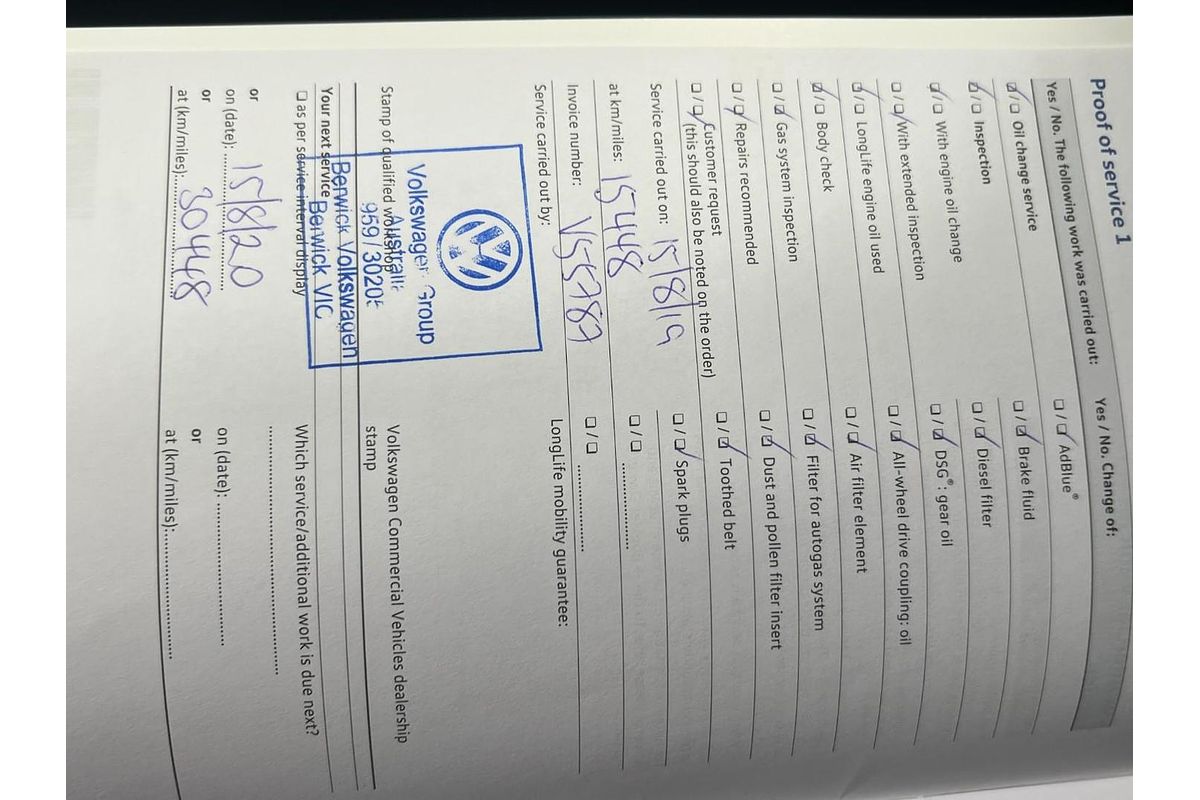 Proof of service 1
Yes / No. The following work was carried out:
☑/☐ Oil change service
☑/☐ Inspection
☑/☐ With engine oil change
☐/☑ With extended inspection
☑/☐ LongLife engine oil used
☑/☐ Body check
☐/☑ Gas system inspection
☐/☑ Repairs recommended
☐/☑ Customer request
(this should also be noted on the order)
Service carried out on: 15/8/19
at km/miles: 15448
Invoice number: V55787
Service carried out by:
Volkswagen Group
Australia
959/3020
Berwick Volkswagen
Berwick VIC
Stamp of qualified workshop
Your next service
☐ as per service interval display
or
on (date): 15/8/20
or
at (km/miles): 30448
Yes / No. Change of:
☐/☑ AdBlue®
☐/☑ Brake fluid
☐/☑ Diesel filter
☐/☑ DSG®: gear oil
☐/☑ All-wheel drive coupling: oil
☐/☑ Air filter element
☐/☑ Filter for autogas system
☐/☑ Dust and pollen filter insert
☐/☑ Toothed belt
☐/☑ Spark plugs
☐/☐ ....................
☐/☐ ....................
LongLife mobility guarantee:
Volkswagen Commercial Vehicles dealership
stamp
Which service/additional work is due next?
............................................................
on (date): ..............................
or
at (km/miles): ..........................